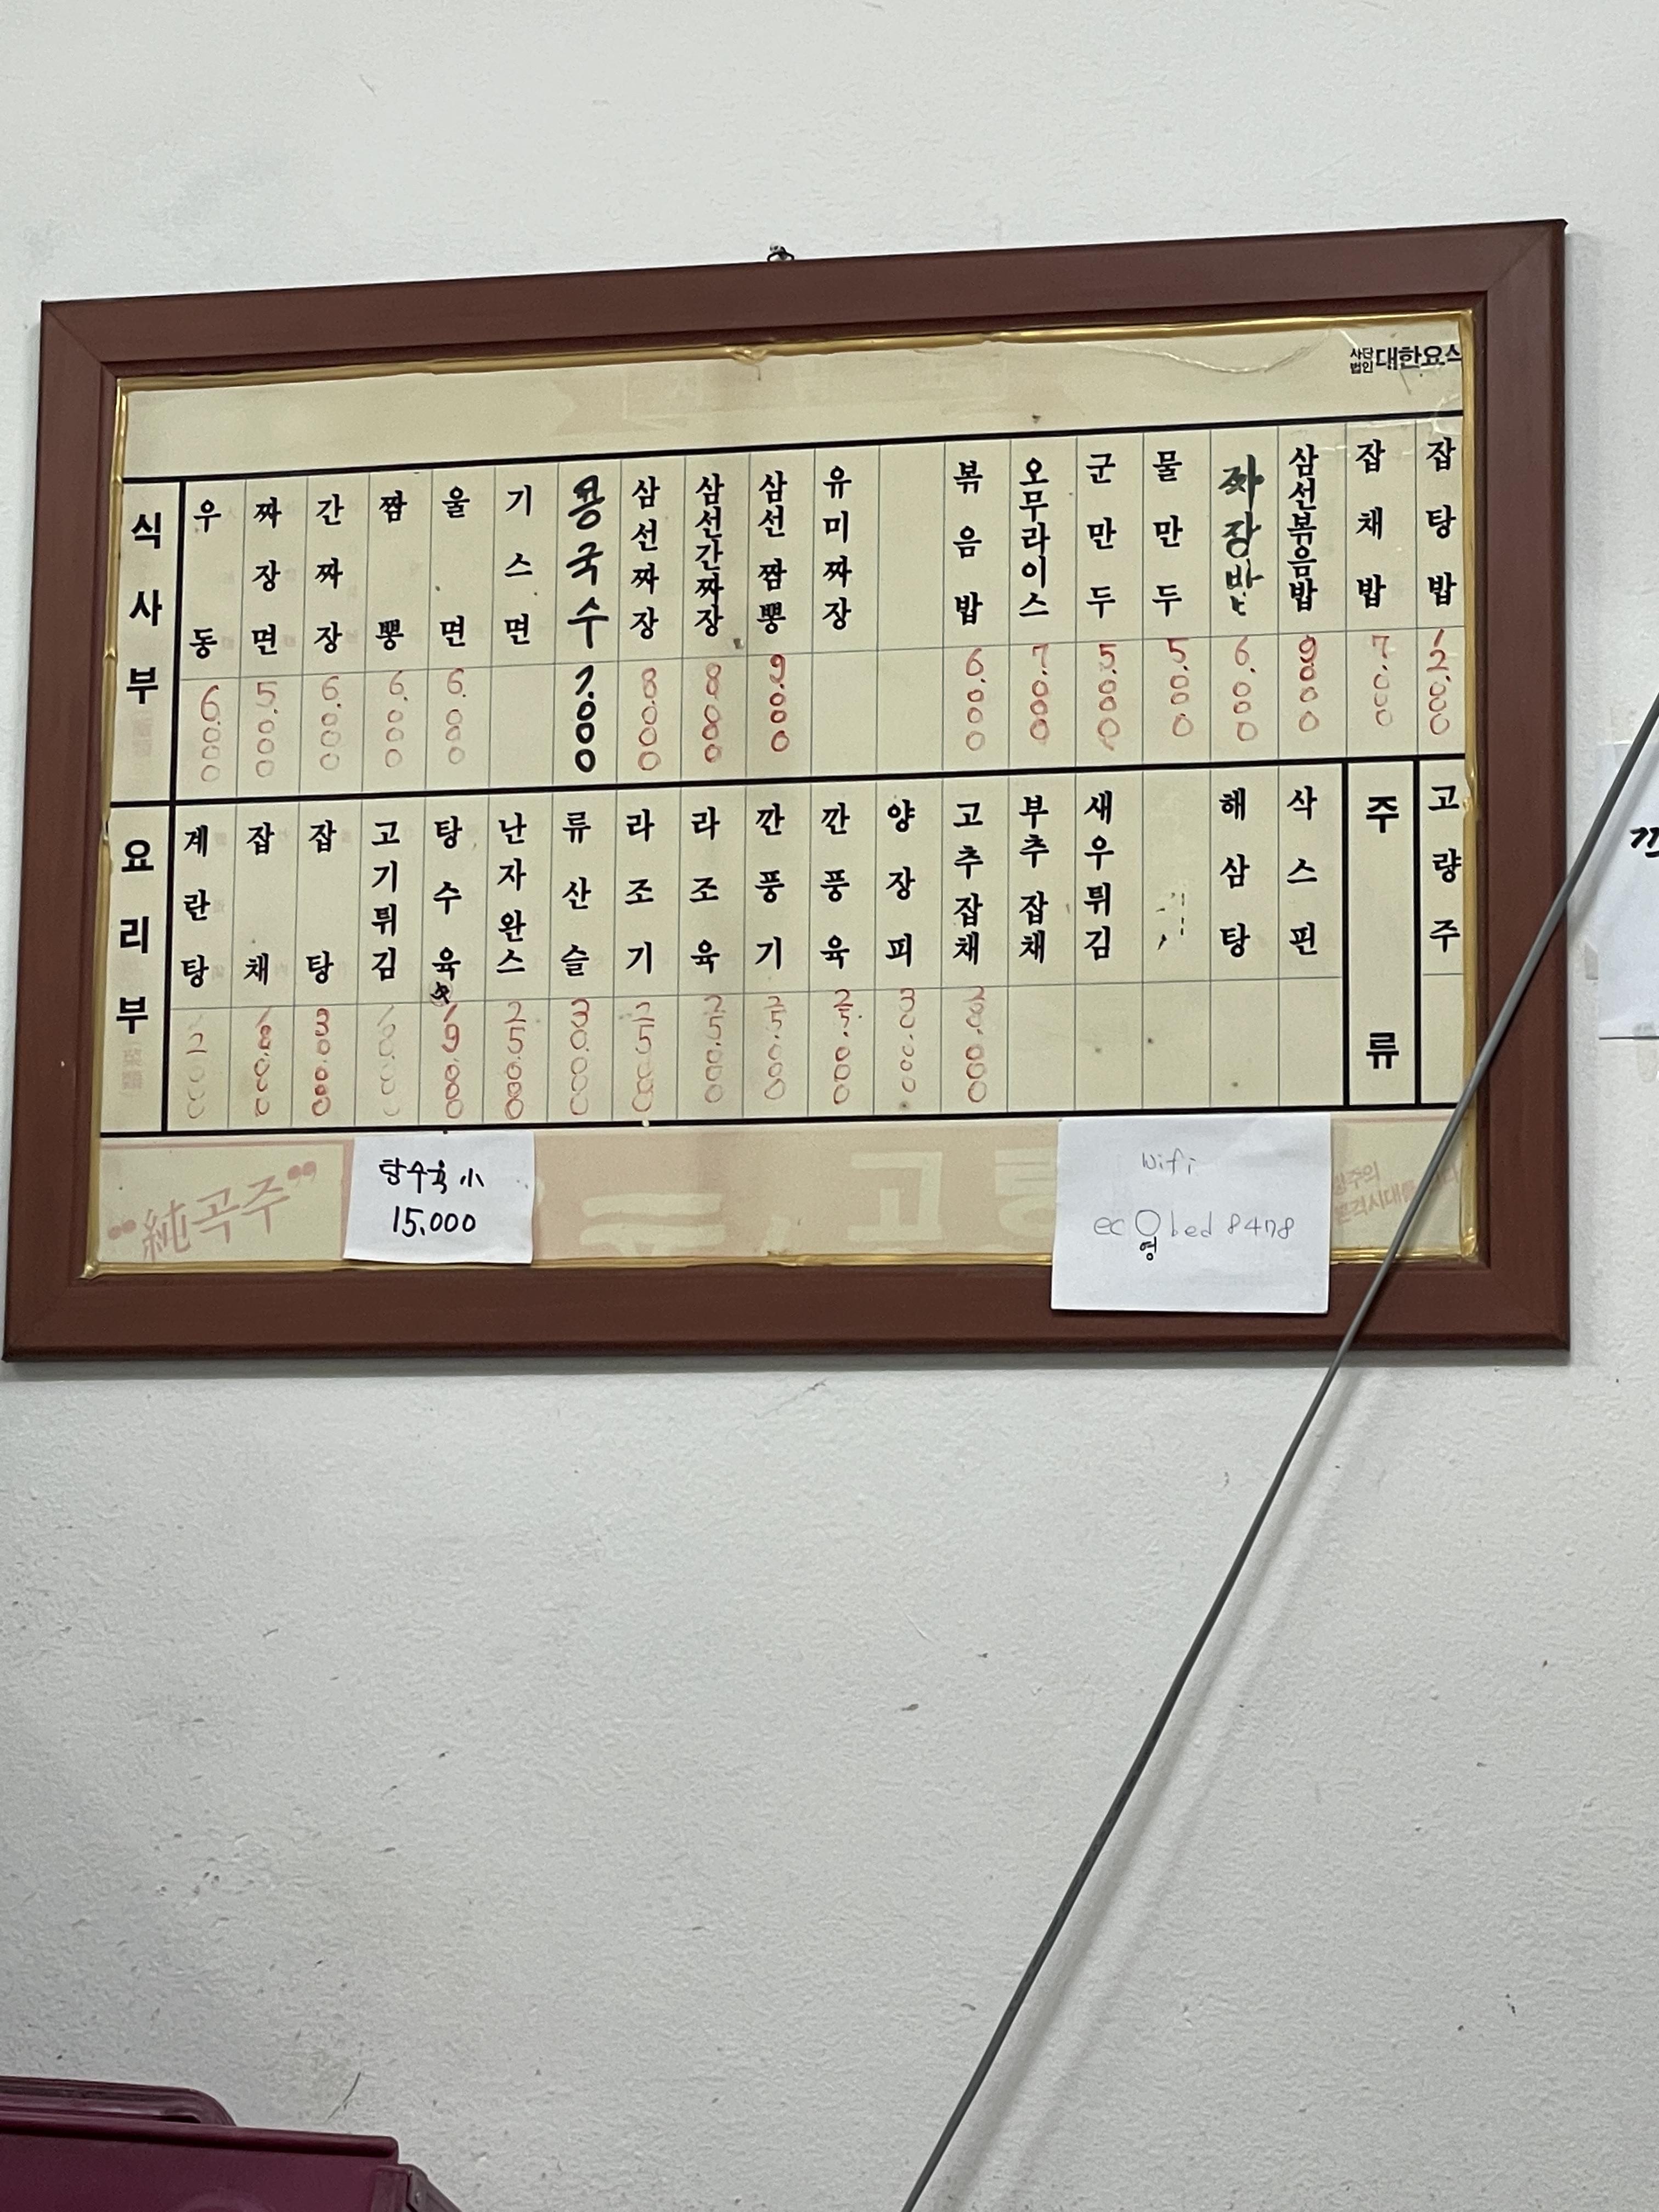 사단법인 대한요식
식사부
우동 6.000
짜장면 5.000
간짜장 6.000
짬뽕 6.000
울면 6.000
기스면
콩국수 7.000
삼선짜장 8.000
삼선간짜장 8000
삼선짬뽕 9.000
유미짜장
볶음밥 6.000
오무라이스 7.000
군만두 5.000
물만두 5.000
짜장밥 6.000
삼선볶음밥 9000
잡채밥 7.000
잡탕밥 12.000
요리부
계란탕
잡채
잡탕 30.000
고기튀김
탕수육 19.000
난자완스 25000
류산슬 30.000
라조기 25000
라조육 25.000
깐풍기 25.000
깐풍육 25.000
양장피
고추잡채
부추잡채
새우튀김
해삼탕
삭스핀
주류
고량주
"純곡주"
탕수육 小
15,000
wifi
영